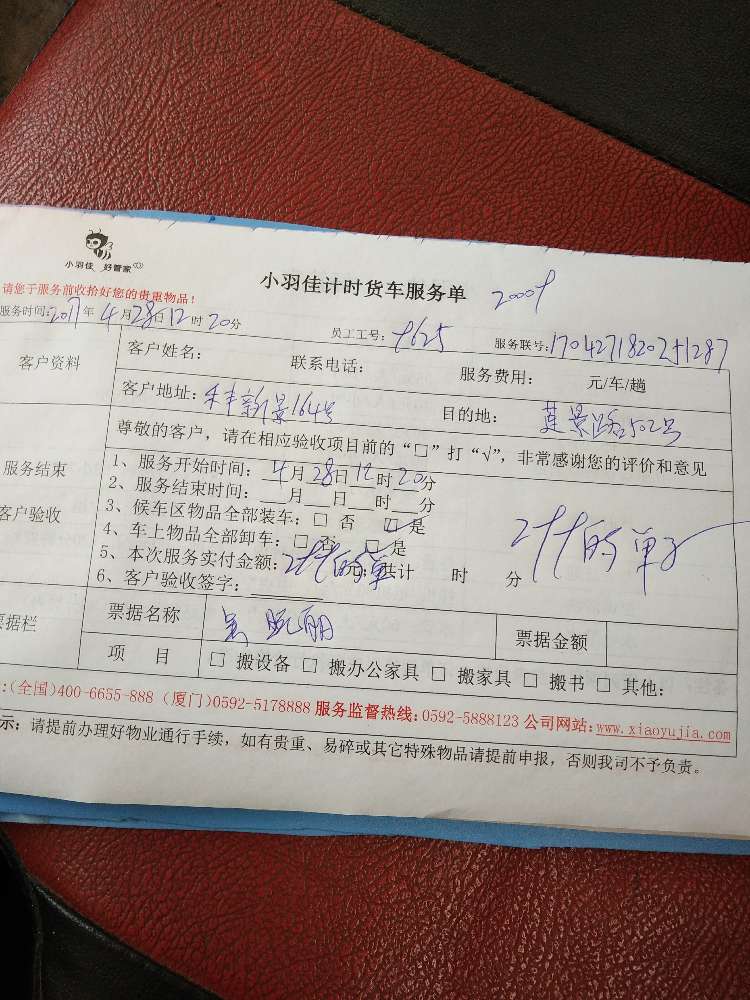 小羽佳 好管家
小羽佳计时货车服务单
请您于服务前收拾好您的贵重物品！
服务时间:2017年4月28日12时20分 员工工号: 服务联号:
客户资料 客户姓名： 联系电话： 服务费用： 元/车/趟
客户地址: 新景164号 目的地： 莲景路502号
尊敬的客户，请在相应验收项目前的“□”打“√”，非常感谢您的评价和意见
服务结束
客户验收
1、服务开始时间：4月28日12时20分
2、服务结束时间：__月__日__时__分
3、候车区物品全部装车：□ 否 □ 是
4、车上物品全部卸车：□ 否 □ 是
5、本次服务实付金额: 元，共计 时 分
的单子
6、客户验收签字：
票据栏 票据名称 票据金额
项 目 □ 搬设备 □ 搬办公家具 □ 搬家具 □ 搬书 □ 其他：
:(全国)400-6655-888 (厦门)0592-5178888 服务监督热线:0592-5888123 公司网站:www.xiaoyujia.com
示：请提前办理好物业通行手续，如有贵重、易碎或其它特殊物品请提前申报，否则我司不予负责。